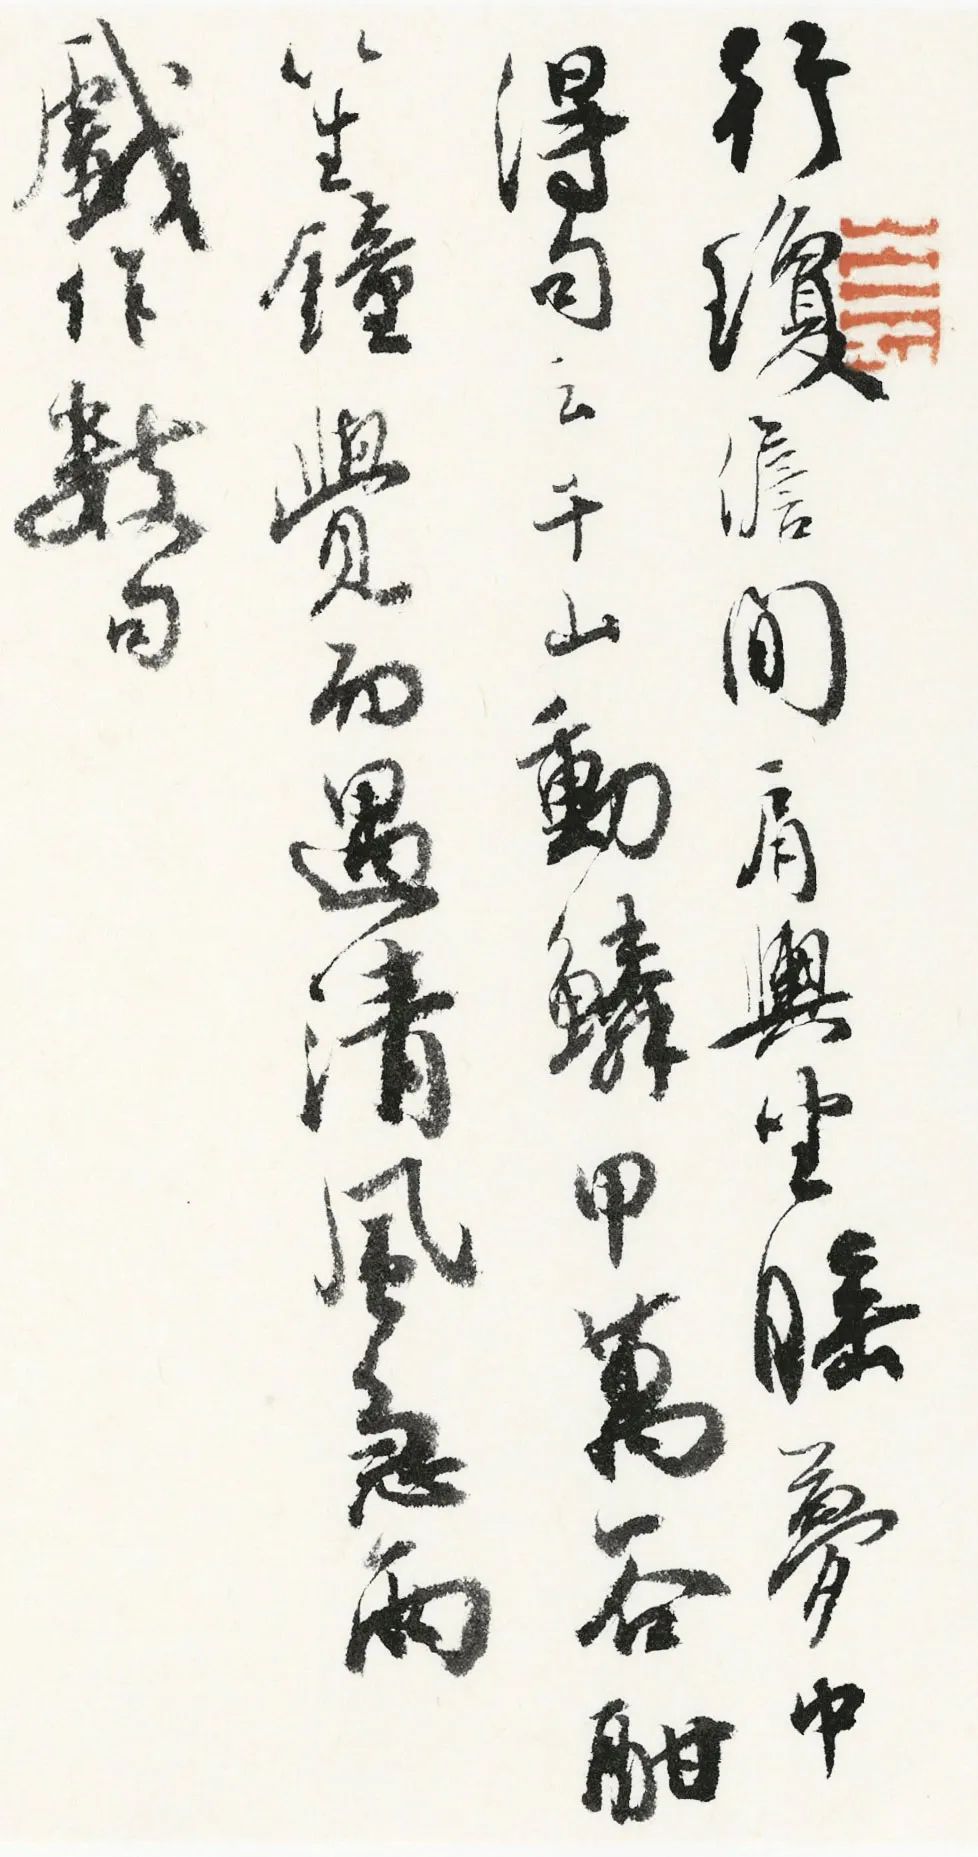 行瓊儋間肩輿坐睡夢中
得句云千山動鱗甲萬谷酣
笙鐘覺而遇清風急雨
戲作數句